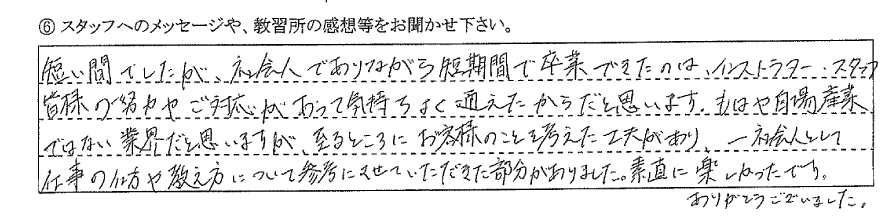 ⑥ スタッフへのメッセージや、教習所の感想等をお聞かせ下さい。
短い間でしたが、社会人でありながら短期間で卒業できたのは、インストラクター、スタッフ
皆様の努力やご対応があって気持ちよく通えたからだと思います。もはや自場産業
ではない業界だと思いますが、至るところにお客様のことを考えた工夫があり、一社会人として
仕事の仕方や教え方について参考にさせていただきた部分がありました。素直に楽しかったです。
ありがとうございました。